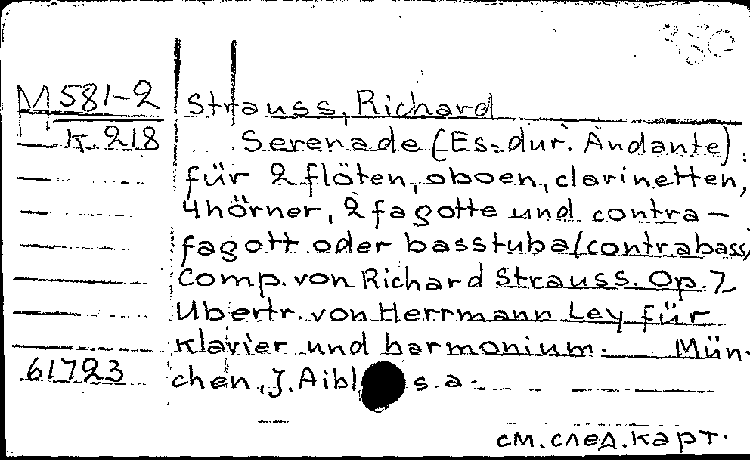 M 581-2
к. 218
Strauss, Richard
Serenade (Es-dur. Andante)
für 2 flöten, oboen, clarinetten,
4 hörner, 2 fagotte und contra-
fagott oder basstuba/contrabass/
Comp. von Richard Strauss. Op. 7
Ubertr. von Herrmann Ley für
klavier und harmonium. Mün-
61723
chen, J. Aibl s.a.
см. след. карт.